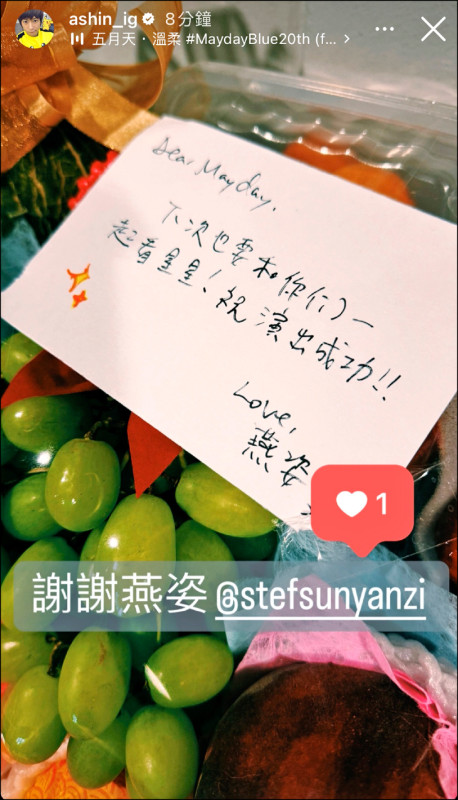 ashin_ig 8分鐘
五月天・溫柔 #MaydayBlue20th (f... >
Dear Mayday,
下次也要和你们一
起看星星！祝演出成功!!
Love,
燕姿
1
謝謝燕姿 @stefsunyanzi